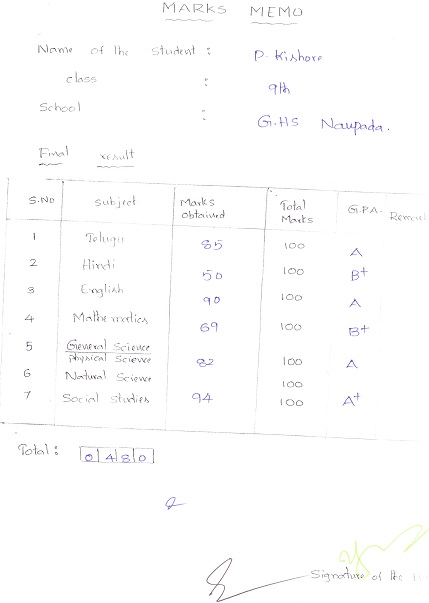 MARKS MEMO
Name of the student : P. Kishore
class : 9th
School : G.HS Naupada.
Final result
S.NO Subject Marks Obtained Total Marks G.P.A.
1 Telugu 85 100 A
2 Hindi 50 100 B+
3 English 90 100 A
4 Mathematics 69 100 B+
5 General Science
Physical Science 82 100 A
6 Natural Science 100
7 Social studies 94 100 A+
Total : 0480
Signature of the